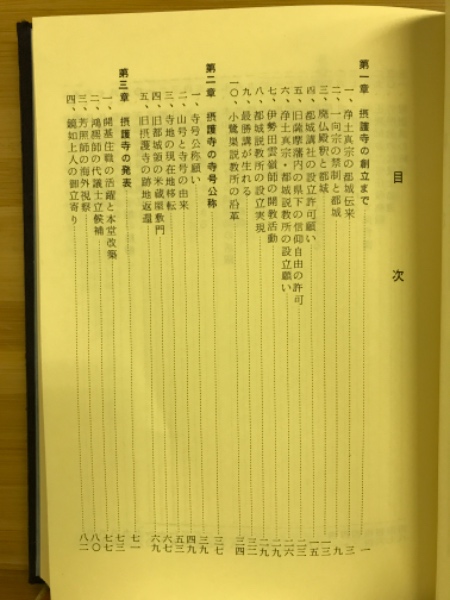 目次
第一章 摂護寺の創立まで………一
一、浄土真宗の都城伝来………三
二、一向宗の禁制と都城………九
三、廃仏毀釈と都城………一三
四、都城講社の設立許可願い………一五
五、旧薩摩藩内の県下の信仰自由の許可………二三
六、浄土真宗・都城説教所の設立願い………二六
七、伊勢田雲嶺師の開教活動………二九
八、都城説教所の設立実現………二九
九、最勝講が生れる………三二
一〇、小鷺巣説教所の沿革………三四
第二章 摂護寺の寺号公称………三七
一、寺号公称願い………三九
二、山号と寺号の由来………四九
三、寺地の現在地移転………五三
四、旧都城領の米蔵屋敷門………六七
五、旧摂護寺の跡地返還………六九
第三章 摂護寺の発表………七一
一、開基住職の活躍と本堂改築………七三
二、鴻恩師の代議士立候補………七七
三、芳照師の海外視察………八〇
四、鏡如上人の御立寄り………八二